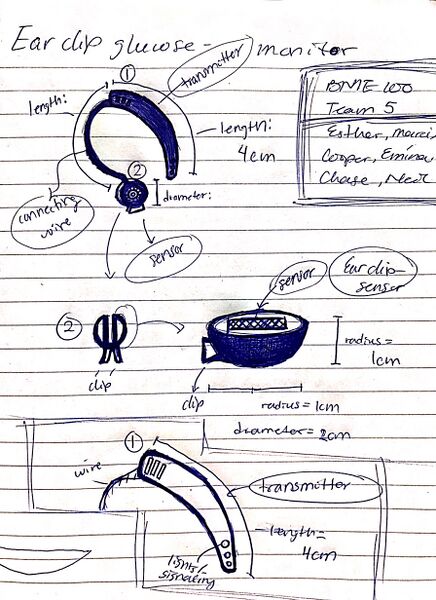 Ear clip glucose - monitor
①
transmitter
length:
length:
4cm
BME 100
Team 5
Esther,
Cooper,
Chase,
②
diameter:
connecting
wire
sensor
sensor
Ear clip-
sensor
②
clip
radius =
1cm
clip
radius = 1cm
diameter = 2cm
①
wire
transmitter
length =
4cm
lights/
signaling